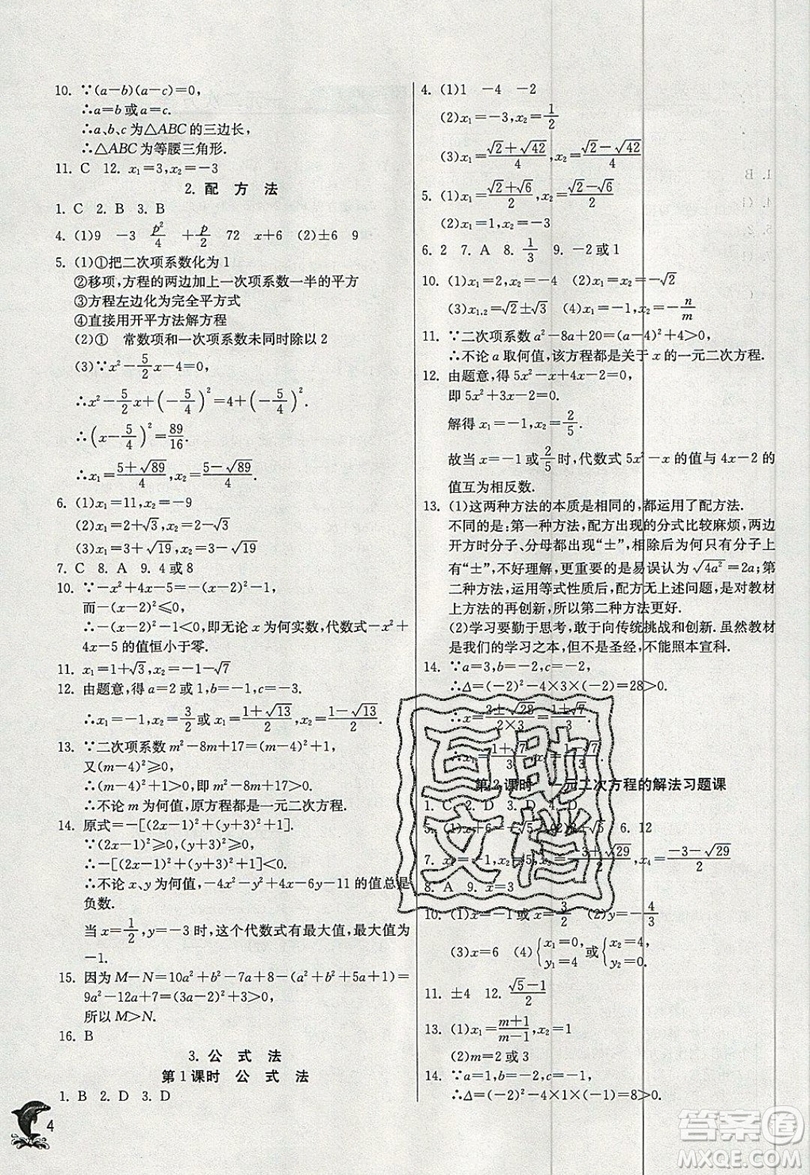 10. ∵(a−b)(a−c)=0,
∴a=b 或a=c.
∵a、b、c 为△ABC 的三边长,
∴△ABC 为等腰三角形.
11. C 12. x₁=3,x₂=−3
2. 配 方 法
1. C 2. B 3. B
4. (1)9 −3 p²/4 +p/2 72 x+6 (2)±6 9
5. (1)①把二次项系数化为1
②移项,方程的两边加上一次项系数一半的平方
③方程左边化为完全平方式
④直接用开平方法解方程
(2)① 常数项和一次项系数未同时除以2
(3)∵x²−5/2x−4=0,
∴x²−5/2x+(−5/4)²=4+(−5/4)².
∴(x−5/4)²=89/16.
∴x₁=(5+√89)/4,x₂=(5−√89)/4.
6. (1)x₁=11,x₂=−9
(2)x₁=2+√3,x₂=2−√3
(3)x₁=3+√19,x₂=3−√19
7. C 8. A 9. 4或8
10. ∵−x²+4x−5=−(x−2)²−1,
而−(x−2)²≤0,
∴−(x−2)²−1<0,即无论 x 为何实数,代数式−x²+
4x−5的值恒小于零.
11. x₁=1+√3,x₂=−1−√7
12. 由题意,得a=2,b=−1,c=−3.
∴x₁=−1,x₂=3/2或x₁=(1+√13)/2,x₂=(1−√13)/2.
13. ∵二次项系数m²−8m+17=(m−4)²+1,
又∵(m−4)²≥0,
∴(m−4)²+1>0,即m²−8m+17>0.
∴不论 m 为何值,原方程都是一元二次方程.
14. 原式=−[(2x−1)²+(y+3)²+1].
∵(2x−1)²≥0,(y+3)²≥0,
∴−[(2x−1)²+(y+3)²+1]<0.
∴不论x、y为何值,−4x²−y²+4x−6y−11的值总是
负数.
当x=1/2,y=−3时,这个代数式有最大值,最大值为
−1.
15. 因为M−N=10a²+b²−12a+8−(a²+b²+5a+1)=
9a²−12a+5a²+7=(3a−2)²+3>0,
所以 M>N.
16. B
3. 公 式 法
第1课时 公 式 法
1. B 2. D 3. D
4
4. (1)1 −4 −2
(2)x₁=−3,x₂=1/2
(3)x₁=(√2+√42)/4,x₂=(√2−√42)/4
5. (1)x₁=(√2+√6)/2,x₂=(√2−√6)/2
(2)x₁=−3,x₂=1
6. 2 7. A 8. 1/3 9. −2或1
10. (1)x₁=2,x₂=4 (2)x₁=x₂=−√2
(3)x₁.₂=√2±√3 (4)x₁=0,x₂=−n/m
11. ∵二次项系数a²−8a+20=(a−4)²+4>0,
∴不论 a 取何值,该方程都是关于 x 的一元二次方程.
12. 由题意,得5x²−x+4x−2=0,
即5x²+3x−2=0.
解得x₁=−1,x₂=2/5.
故当x=−1或2/5时,代数式5x²−x的值与4x−2的
值互为相反数.
13. (1)这两种方法的本质是相同的,都运用了配方法.
不同的是:第一种方法,配方出现的分式比较麻烦,两边
开方时分子、分母都出现“±”,相除后为何只有分子上
有“±”,不好理解.更重要的是易误认为√4a²=2a;第
二种方法,运用等式性质后,配方无上述问题,是对教材
上方法的再创新,所以第二种方法更好.
(2)学习要勤于思考,敢于向传统挑战和创新.虽然教材
是我们的学习之本,但不是圣经,不能照本宣科.
14. ∵a=3,b=−2,c=−2,
∴Δ=(−2)²−4×3×(−2)=28>0.
∴x=(2±√28)/(2×3)=(1±√7)/3.
第2课时 一元二次方程的解法习题课
6. 12
8. A 9. x=3
10. (1)x=1或x=3/2 (2)y=−4/3
(3)x=6 (4){x₁=0,y₁=4或{x₂=4,y₂=0
11. ±4 12. (√5−1)/2
13. (1)x₁=(m+1)/(m−1),x₂=1
(2)m=2或3
14. ∵a=1,b=−2,c=−8,
∴Δ=(−2)²−4×1×(−8)=36>0.
互助
文档
答案圈
MXQE.COM